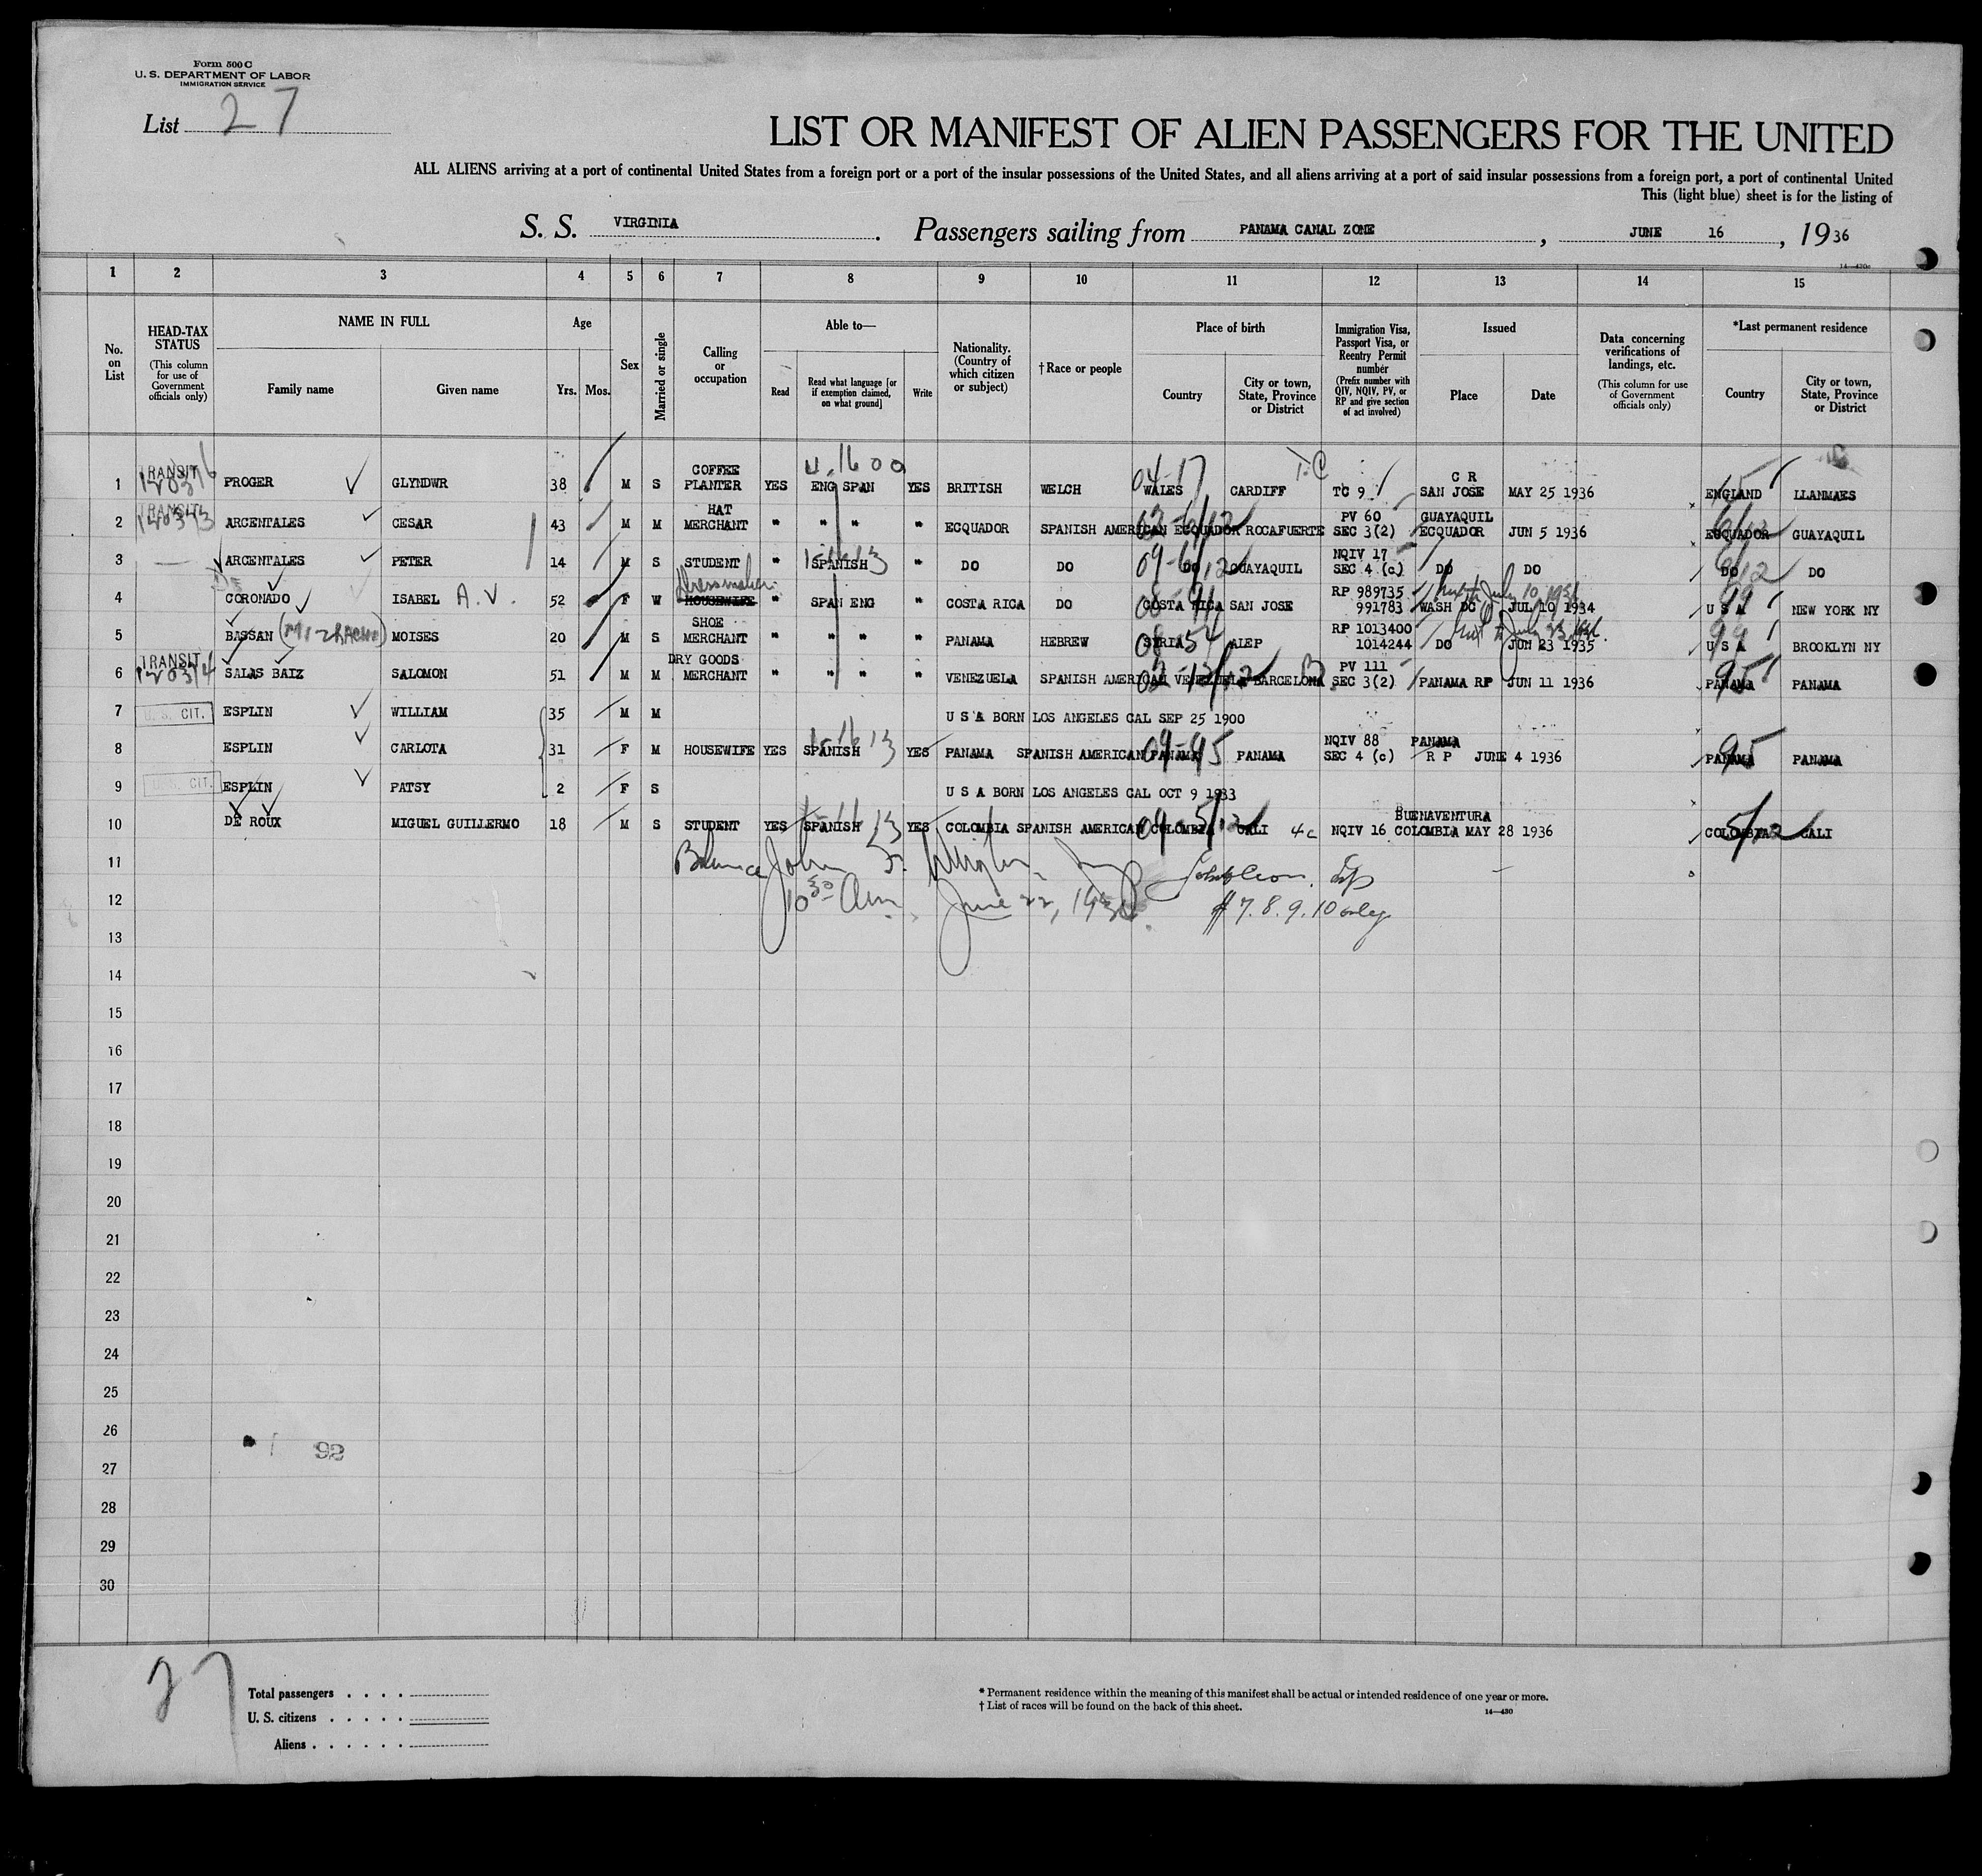 Form 500 C
U. S. DEPARTMENT OF LABOR
IMMIGRATION SERVICE
List 27
LIST OR MANIFEST OF ALIEN PASSENGERS FOR THE UNITED
ALL ALIENS arriving at a port of continental United States from a foreign port or a port of the insular possessions of the United States, and all aliens arriving at a port of said insular possessions from a foreign port, a port of continental United
This (light blue) sheet is for the listing of
S. S. VIRGINIA. Passengers sailing from PANAMA CANAL ZONE, JUNE 16, 1936
1 2 3 4 5 6 7 8 9 10 11 12 13 14 15
No. on List
HEAD-TAX STATUS (This column for use of Government officials only)
NAME IN FULL
Family name Given name
Age
Yrs. Mos.
Sex
Married or single
Calling or occupation
Able to—
Read Read what language [or if exemption claimed, on what ground] Write
Nationality. (Country of which citizen or subject)
†Race or people
Place of birth
Country City or town, State, Province or District
Immigration Visa, Passport Visa, or Reentry Permit number (Prefix number with QIV, NQIV, PV, or RP and give section of act involved)
Issued
Place Date
Data concerning verifications of landings, etc. (This column for use of Government officials only)
*Last permanent residence
Country City or town, State, Province or District
1 TRANSIT PROGER GLYNDWR 38 M S COFFEE PLANTER YES ENG SPAN YES BRITISH WELCH WALES CARDIFF TC 9 C R SAN JOSE MAY 25 1936 ENGLAND LLANMAES
2 TRANSIT ARCENTALES CESAR 43 M M HAT MERCHANT " " " " ECQUADOR SPANISH AMERICAN ECQUADOR ROCAFUERTE PV 60 SEC 3(2) GUAYAQUIL ECQUADOR JUN 5 1936 ECQUADOR GUAYAQUIL
3 ARCENTALES PETER 14 M S STUDENT " SPANISH " DO DO DO GUAYAQUIL NQIV 17 SEC 4 (c) DO DO DO DO
4 CORONADO ISABEL A.V. 52 F W Dressmaker HOUSEWIFE " SPAN ENG " COSTA RICA DO COSTA RICA SAN JOSE RP 989735 991783 WASH DC JUL 10 1934 U S A NEW YORK NY
5 BASSAN (MIZRACHI) MOISES 20 M S SHOE MERCHANT " " " " PANAMA HEBREW SYRIA ALEP RP 1013400 1014244 DO JUN 23 1935 U S A BROOKLYN NY
6 TRANSIT SALAS BAIZ SALOMON 51 M M DRY GOODS MERCHANT " " " " VENEZUELA SPANISH AMERICAN VENEZUELA BARCELONA PV 111 SEC 3(2) PANAMA RP JUN 11 1936 PANAMA PANAMA
7 U. S. CIT. ESPLIN WILLIAM 35 M M U S A BORN LOS ANGELES CAL SEP 25 1900
8 ESPLIN CARLOTA 31 F M HOUSEWIFE YES SPANISH YES PANAMA SPANISH AMERICAN PANAMA PANAMA NQIV 88 SEC 4 (c) PANAMA R P JUNE 4 1936 PANAMA PANAMA
9 U. S. CIT. ESPLIN PATSY 2 F S U S A BORN LOS ANGELES CAL OCT 9 1933
10 DE ROUX MIGUEL GUILLERMO 18 M S STUDENT YES SPANISH YES COLOMBIA SPANISH AMERICAN COLOMBIA CALI 4c NQIV 16 BUENAVENTURA COLOMBIA MAY 28 1936 COLOMBIA CALI
11 John F.
12 10 30 Am. June 22, 1936. # 7. 8. 9. 10 only
13
14
15
16
17
18
19
20
21
22
23
24
25
26
92
27
28
29
30
27
Total passengers . . . .
U. S. citizens . . . . .
Aliens . . . . . .
* Permanent residence within the meaning of this manifest shall be actual or intended residence of one year or more.
† List of races will be found on the back of this sheet.
14—430